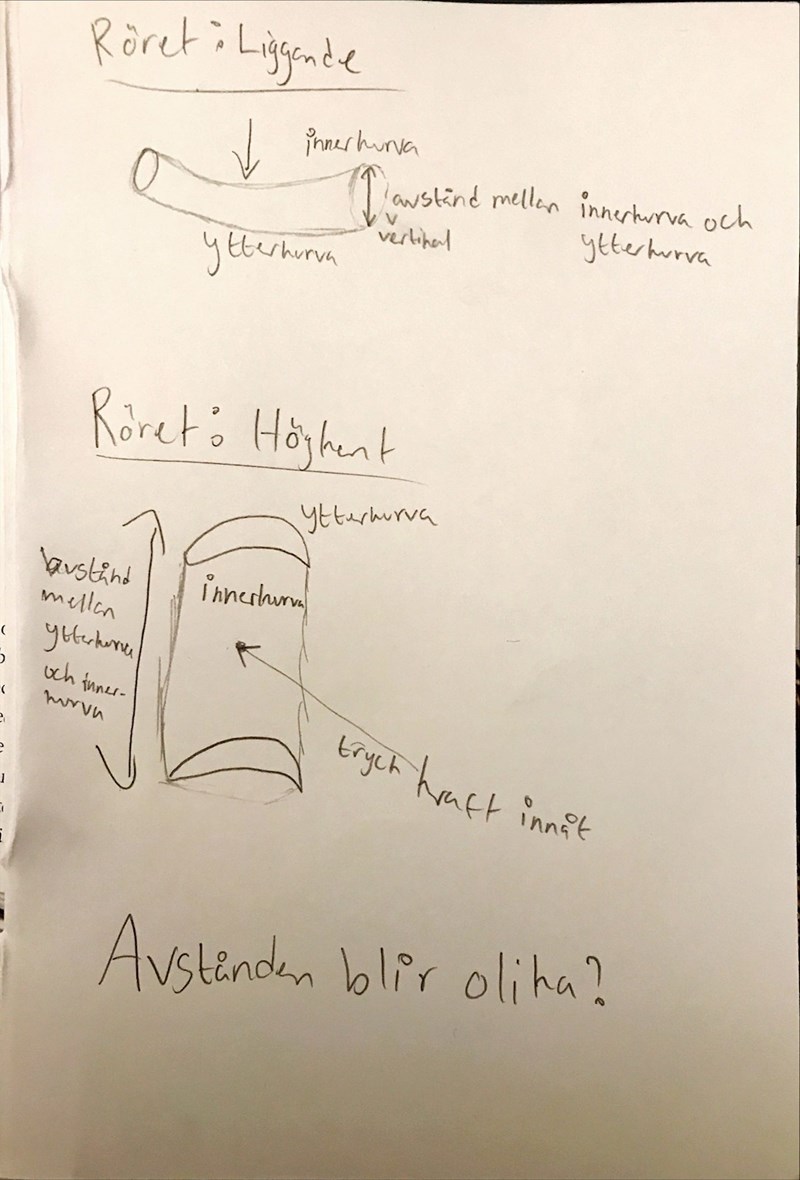 Röret: Liggande
innerkurva
avstånd mellan innerkurva och
ytterkurva
vertikal
ytterkurva
Röret: Högkant
ytterkurva
avstånd
mellan
ytterkurva
och inner-
kurva
innerkurva
tryck kraft inåt
Avstånden blir olika?